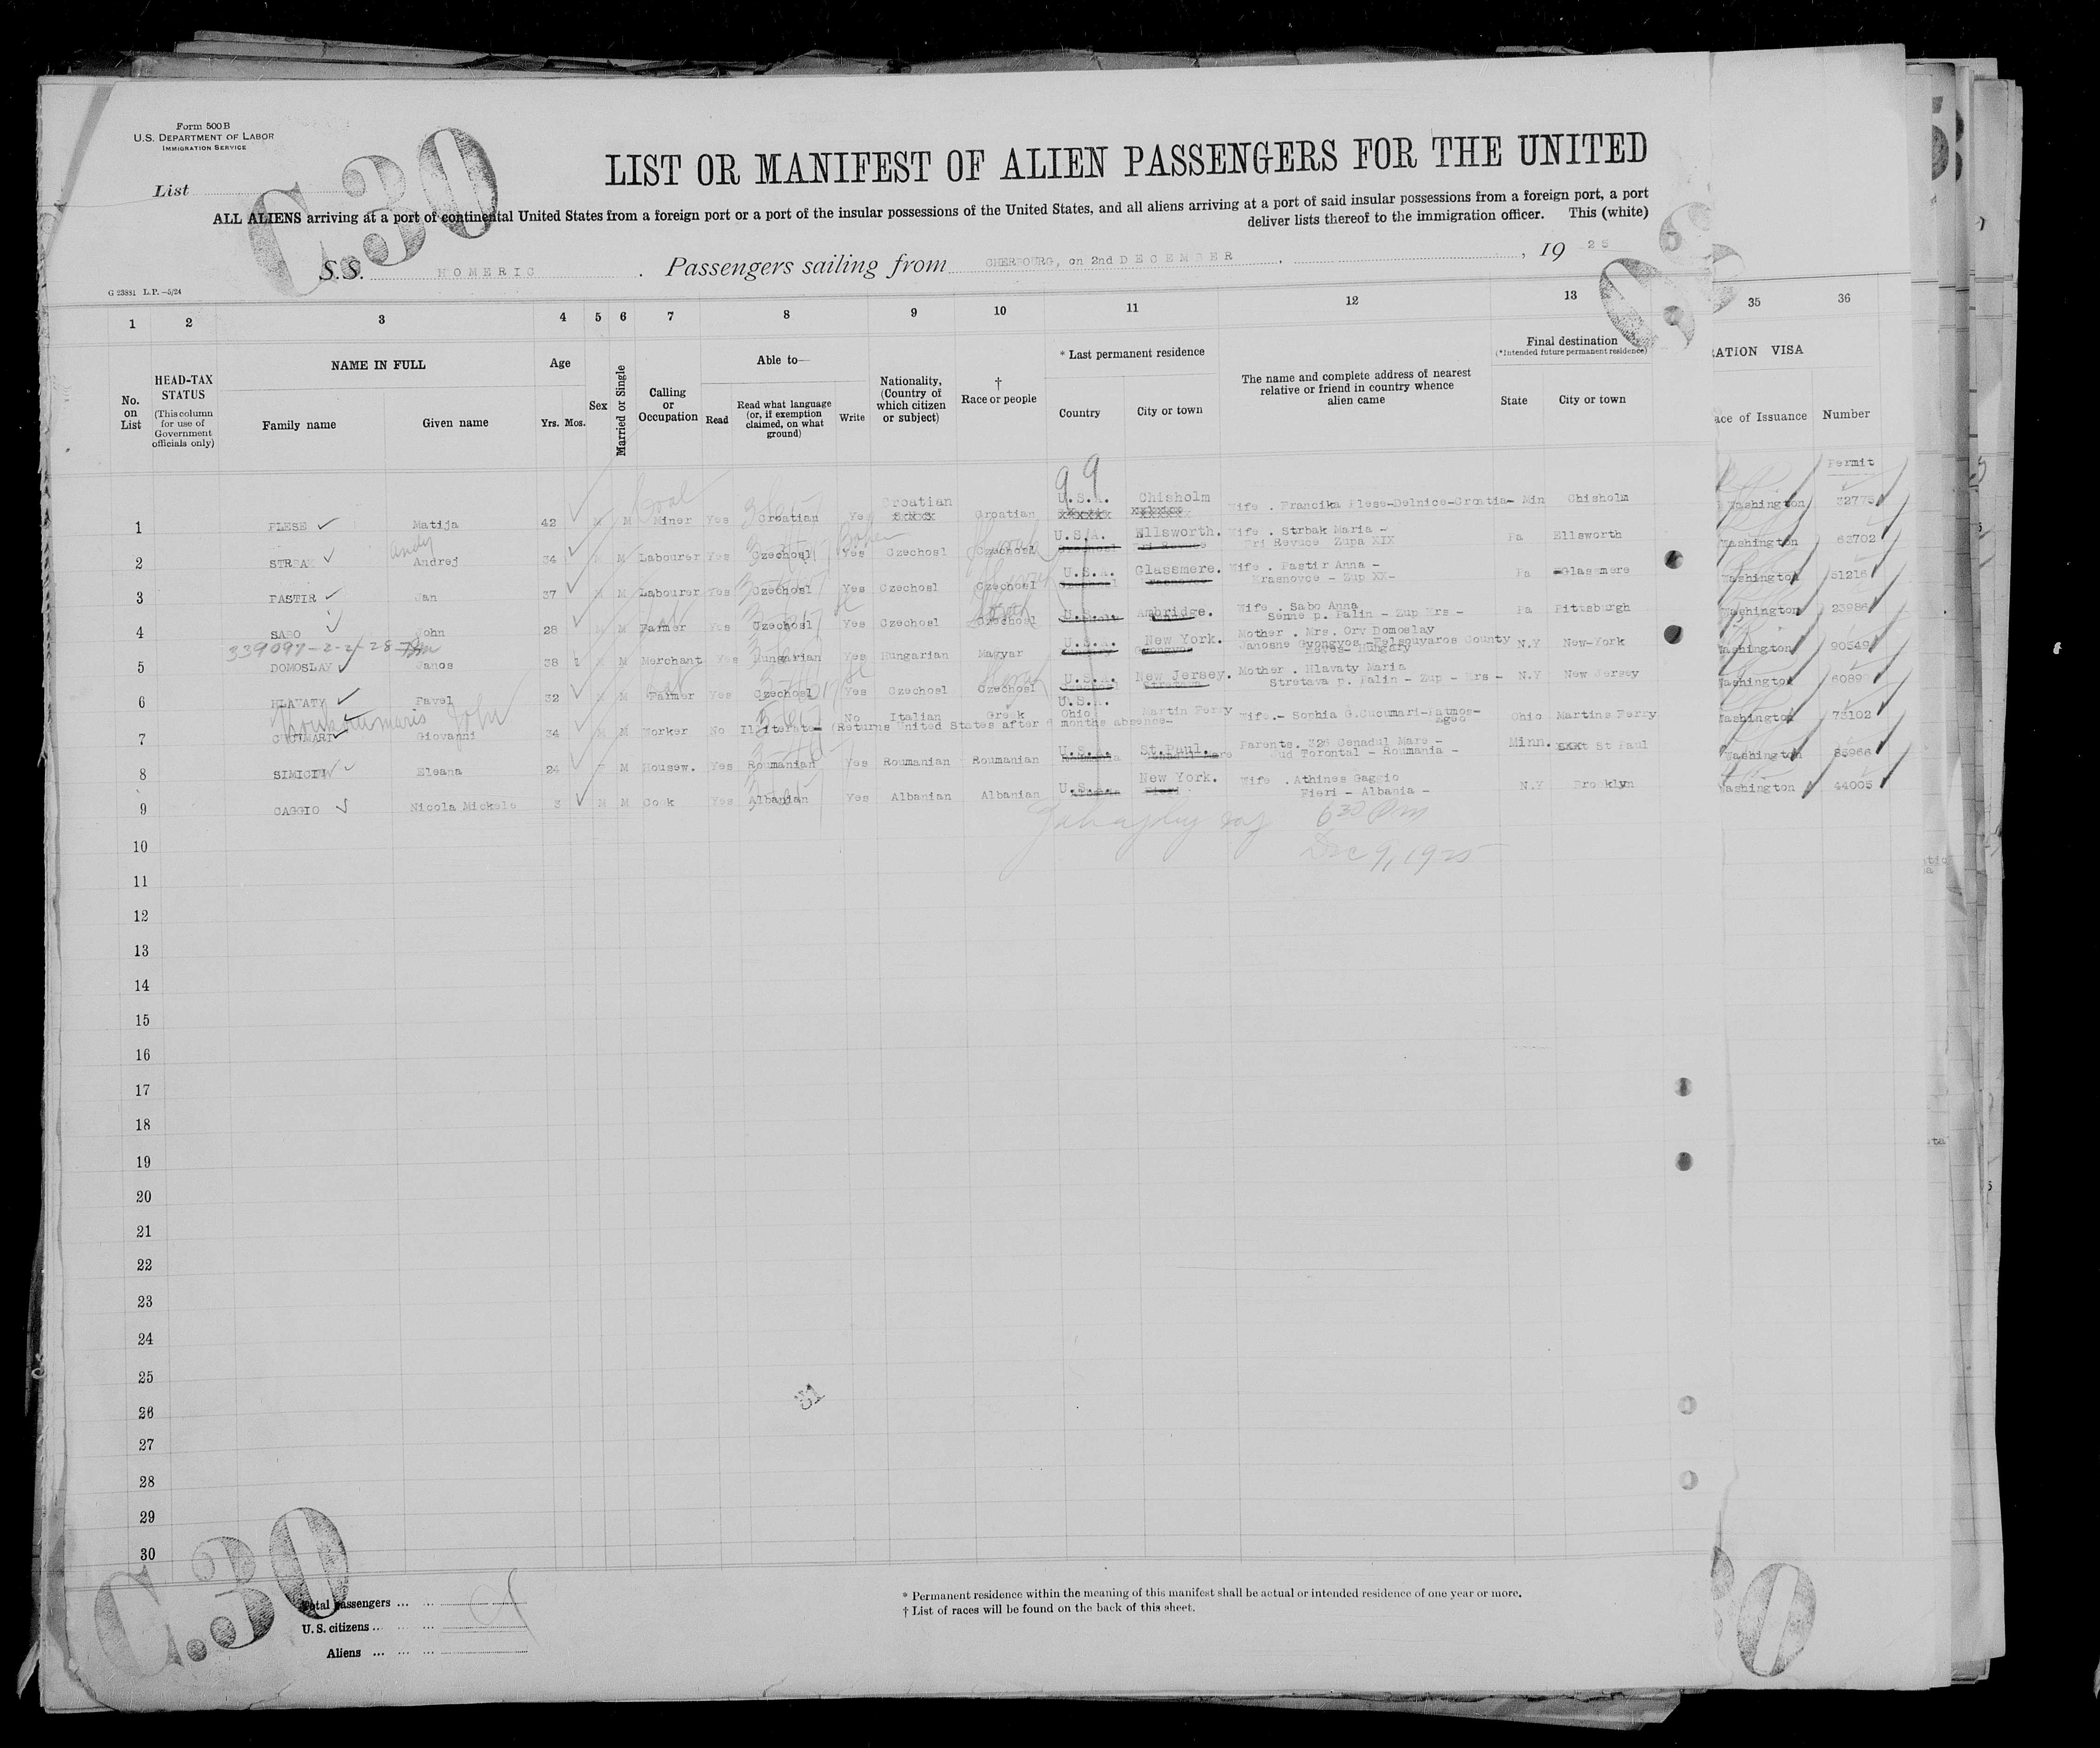 Form 500 B
U.S. DEPARTMENT OF LABOR
IMMIGRATION SERVICE
C.30
List
LIST OR MANIFEST OF ALIEN PASSENGERS FOR THE UNITED
ALL ALIENS arriving at a port of continental United States from a foreign port or a port of the insular possessions of the United States, and all aliens arriving at a port of said insular possessions from a foreign port, a port
deliver lists thereof to the immigration officer. This (white)
S.S. HOMERIC . Passengers sailing from CHERBOURG, on 2nd DECEMBER , 19 25
G 23881 L.P. —5/24
1 2 3 4 5 6 7 8 9 10 11 12 13 35 36
No. on List
HEAD-TAX STATUS (This column for use of Government officials only)
NAME IN FULL
Family name Given name
Age
Yrs. Mos.
Sex
Married or Single
Calling or Occupation
Able to—
Read
Read what language (or, if exemption claimed, on what ground)
Write
Nationality, (Country of which citizen or subject)
† Race or people
* Last permanent residence
Country City or town
The name and complete address of nearest relative or friend in country whence alien came
Final destination
(*Intended future permanent residence)
State City or town
RATION VISA
ace of Issuance Number
Permit
99
1 PLESE Matija 42 M M Coal Miner Yes Croatian Yes Croatian Croatian U.S.A. Chisholm Wife . Francika Plese-Delnice-Croatia- Min Chisholm Washington 32775
2 Andy Andrej 34 M M Labourer Yes Czechosl Yes Czechosl Czechosl U.S.A. Ellsworth. Wife . Strbak Maria - Tri Revuce Zupa XIX Pa Ellsworth Washington 63702
3 PASTIR Jan 37 M M Labourer Yes Czechosl Yes Czechosl Czechosl U.S.A. Glassmere. Wife . Pastir Anna - Krasnovce - Zup XX- Pa Glassmere Washington 51216
4 SABO John 28 M M Farmer Yes Czechosl Yes Czechosl Czechosl U.S.A. Ambridge. Wife . Sabo Anna Senne p. Palin - Zup Krs - Pa Pittsburgh Washington 23986
339097-2-2-28
5 DOMOSLAY Janos 38 1 M M Merchant Yes Hungarian Yes Hungarian Magyar U.S.A. New York. Mother . Mrs. Orv Domoslay Janosne Gyongyos -Felsouvaros County Heves- Hungary N.Y New-York Washington 90549
6 HLAVATY Pavel 32 M M Farmer Yes Czechosl Yes Czechosl Czechosl U.S.A. New Jersey. Mother . Hlavaty Maria Stretava p. Palin - Zup - Krs - N.Y New Jersey Washington
John
7 CUCUMARI Giovanni 34 M M Worker No Illiterate- (Returns United States after months absence- No Italian Greek U.S.A. Ohio Martin Ferry Wife.- Sophia G.Cucumari-Patmos- Egeo Ohio Martins Ferry Washington 73102
8 Eleana 24 F M Housew. Yes Roumanian Yes Roumanian Roumanian U.S.A. St.Paul. Parents. 325 Cenadul Mare - Jud Torontal - Roumania - Minn. St Paul Washington 85966
9 CAGGIO Nicola Mickele M M Cook Yes Albanian Yes Albanian Albanian U.S.A. New York. Wife . Athines Gaggio Fieri - Albania - N.Y Brooklyn Washington 44005
6 30 Pm
10 Dec 9, 1925
11
12
13
14
15
16
17
18
19
20
21
22
23
24
25
26
27
28
29
30
C.30
Total passengers ... ...
U. S. citizens ... ... ...
Aliens ... ... ...
* Permanent residence within the meaning of this manifest shall be actual or intended residence of one year or more.
† List of races will be found on the back of this sheet.